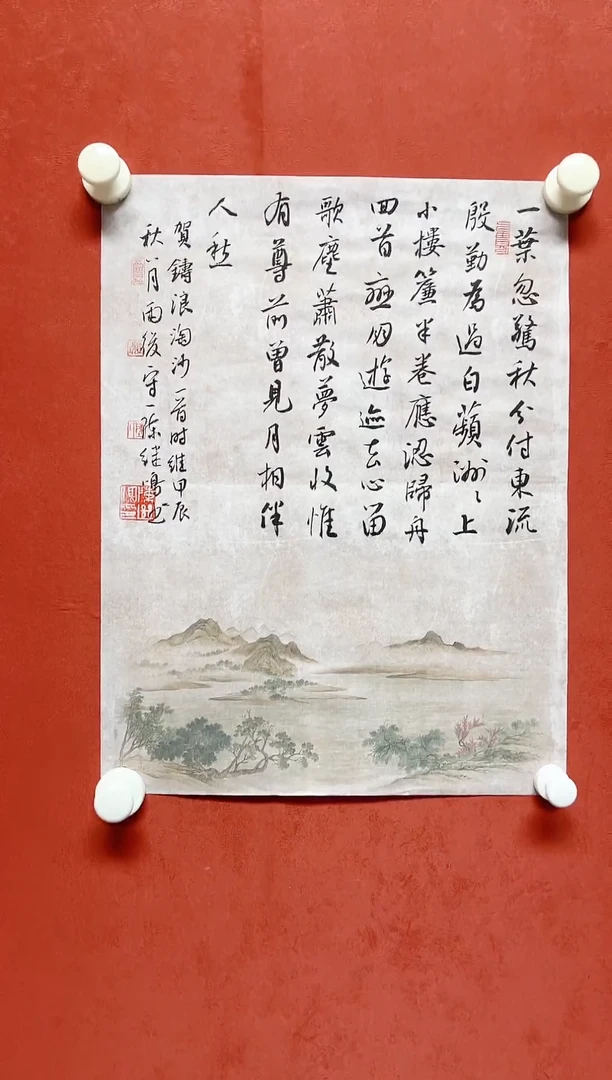 一葉忽驚秋分付東流
殷勤為過白蘋洲〻上
小樓簾半卷應認歸舟
回首戀朋遊迹去心留
歌塵蕭散夢雲收惟
有尊前曾見月相伴
人愁
賀鑄浪淘沙一首时維甲辰
秋八月雨後守一陈继鳴